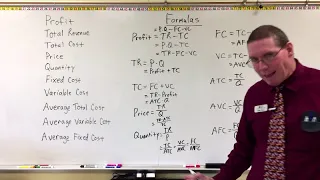 Profit
Total Revenue
Total Cost
Price
Quantity
Fixed Cost
Variable Cost
Average Total Cost
Average Variable Cost
Average Fixed Cost
Formulas
=P·Q-FC-VC
Profit=TR-TC
=P·Q-TC
=TR-FC-VC
TR=P·Q
=Profit+TC
TC=FC+VC
=TR-Profit
=ATC·Q
Price=TR/Q
Quantity=TR/P
=TC/ATC=VC/AVC=FC/AFC
FC=TC-
=AF
VC=TC-
=AV
ATC=TC/Q
AVC=V/Q
AFC=